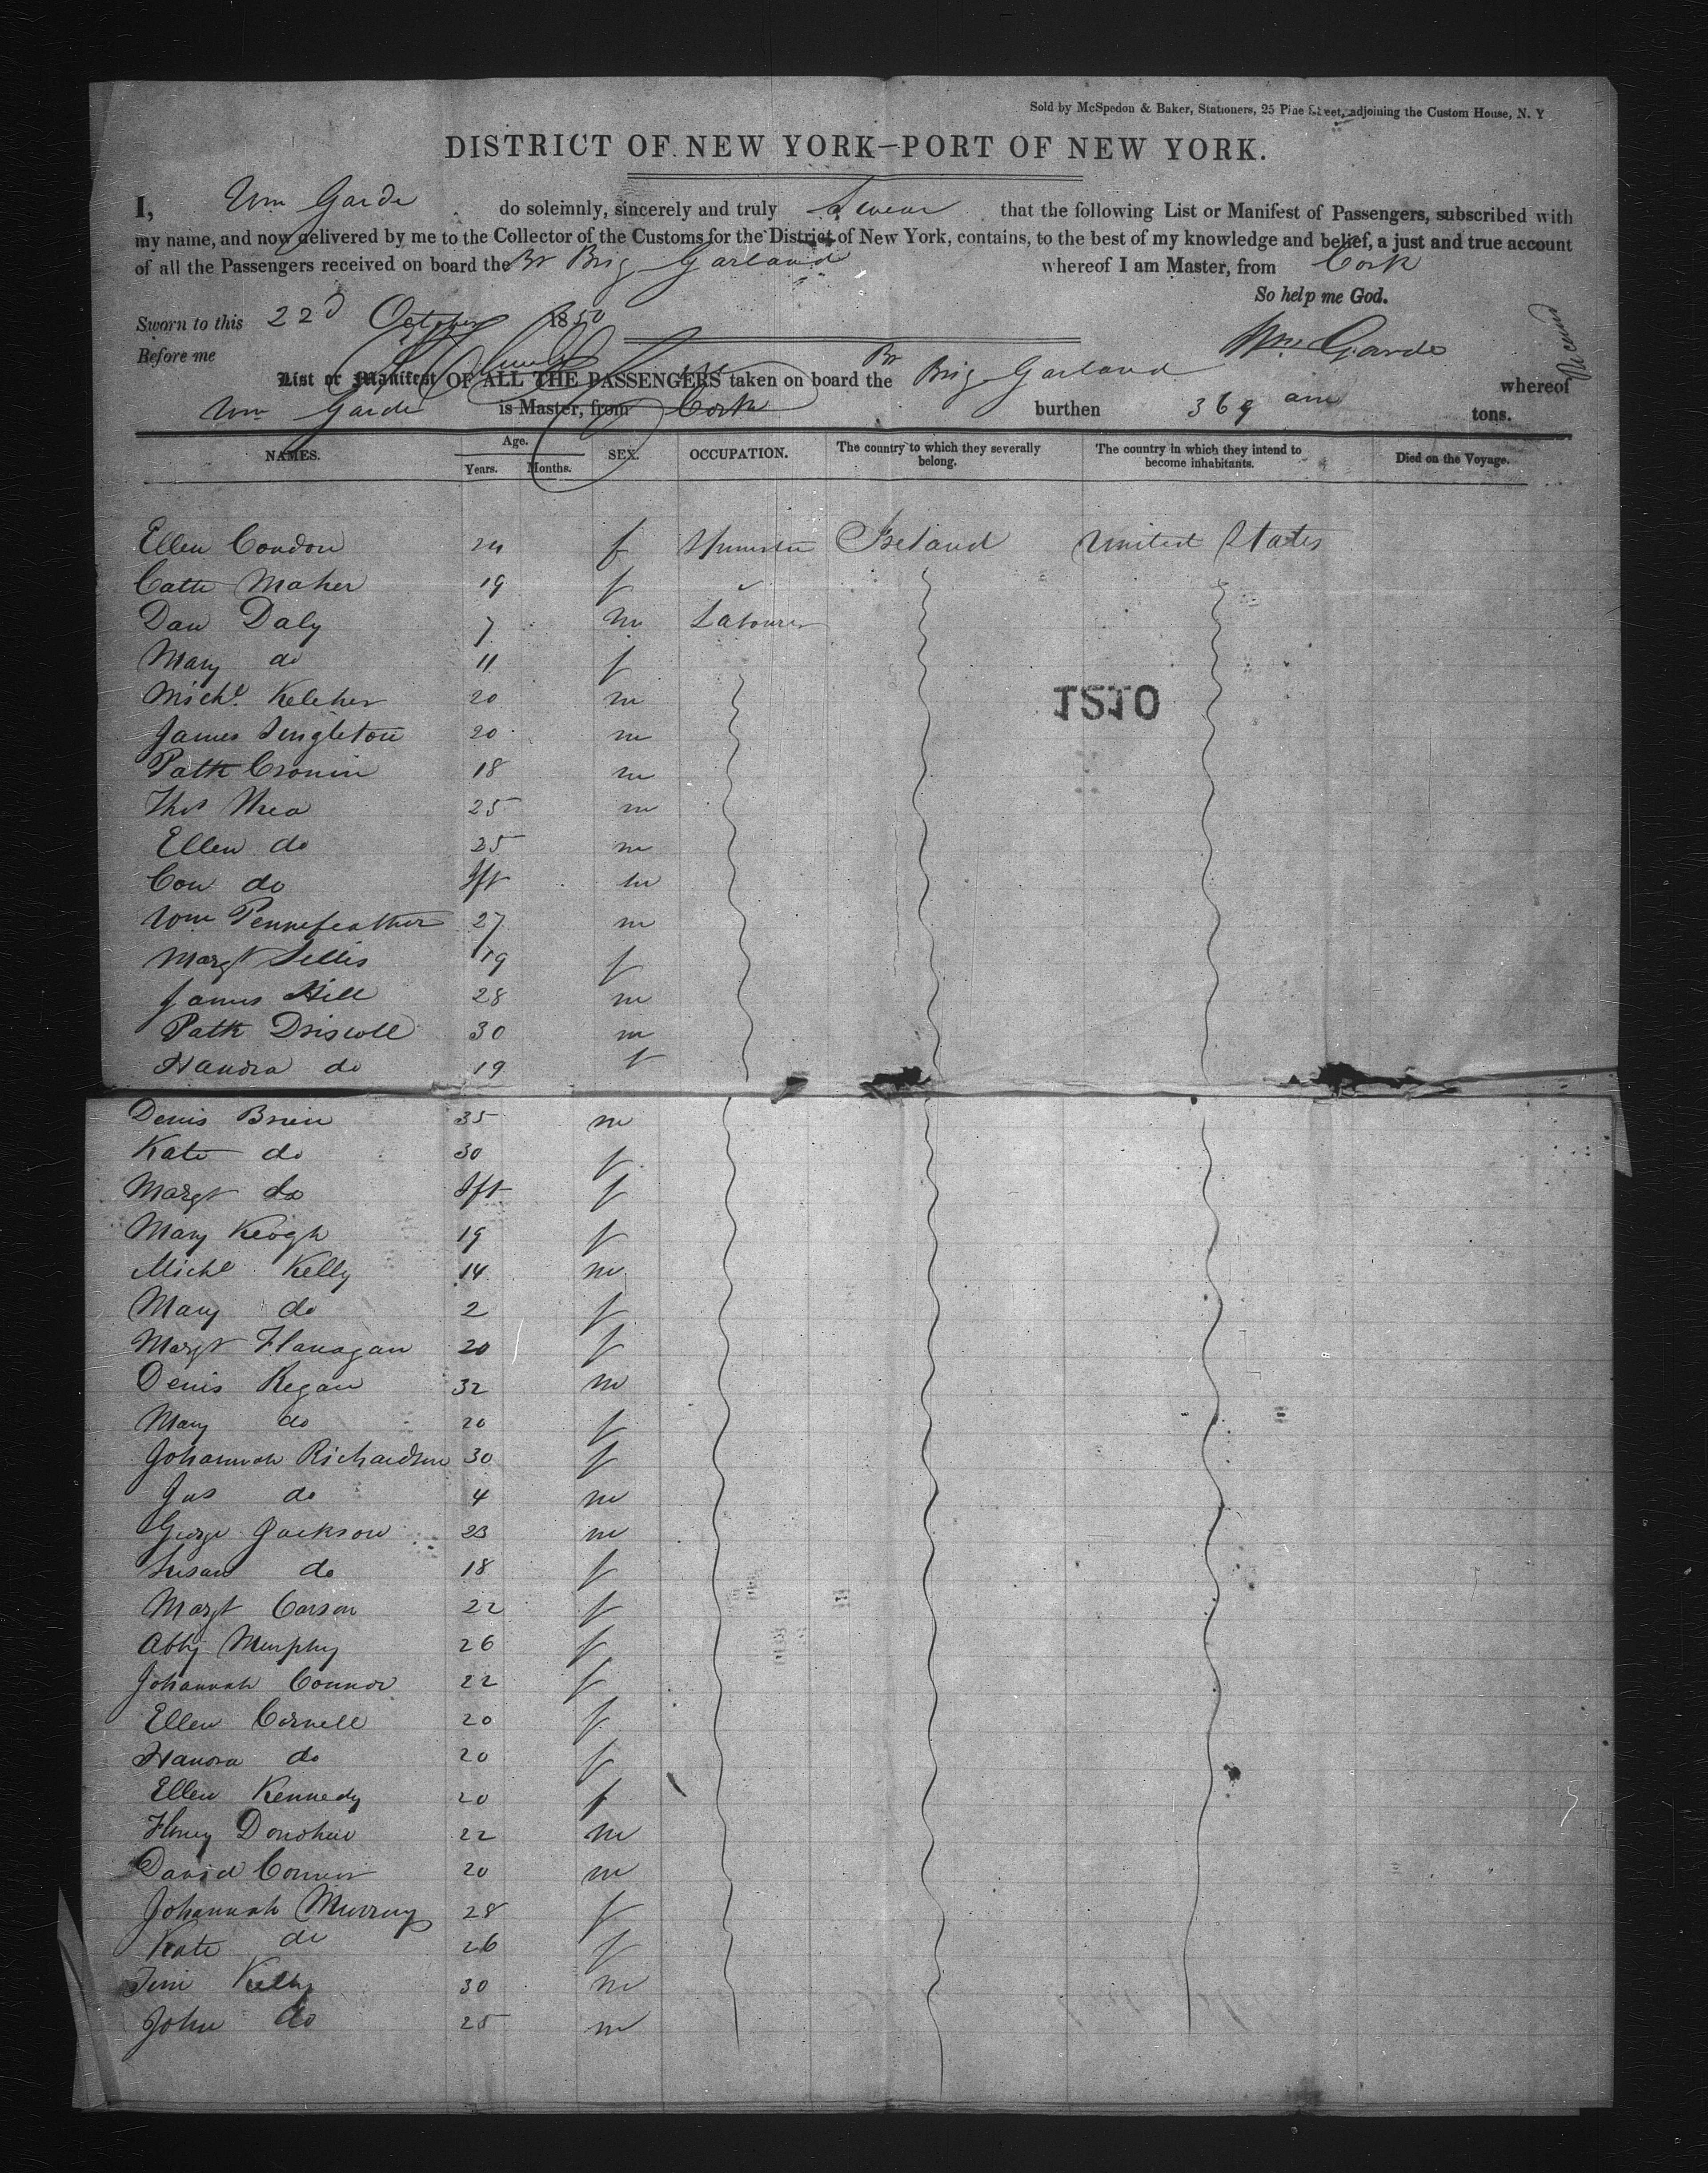 Sold by McSpedon & Baker, Stationers, 25 Pine Street, adjoining the Custom House, N. Y
DISTRICT OF NEW YORK—PORT OF NEW YORK.
I, Wm Garde do solemnly, sincerely and truly swear that the following List or Manifest of Passengers, subscribed with
my name, and now delivered by me to the Collector of the Customs for the District of New York, contains, to the best of my knowledge and belief, a just and true account
of all the Passengers received on board the Br Brig Garland whereof I am Master, from Cork
So help me God.
Sworn to this 22d October 1850
Wm Garde
Before me
List or Manifest OF ALL THE PASSENGERS taken on board the Br Brig Garland whereof
Wm Garde is Master, from Cork burthen 369 tons.
NAMES. Age. Years. Months. SEX. OCCUPATION. The country to which they severally belong. The country in which they intend to become inhabitants. Died on the Voyage.
Ellen Condon 24 f Spinster Ireland United States
Cath Maher 19 f
Dan Daly 7 m Labourer
Mary do 11 f
Michl Keleher 20 m
James Singleton 20 m
Patk Cronin 18 m
Thos 25 m
Ellen do 25 m
Con do Ift m
Wm Pennefeather 27 m
Margt 19 f
James Hill 28 m
Patk Driscoll 30 m
Hanora do 19 f
Denis Brien 35 m
Kate do 30 f
Margt do Ift f
Mary Keogh 19 f
Michl Kelly 14 m
Mary do 2 f
Margt Flanagan 20 f
Denis Regan 32 m
Mary do 20 f
Johannah Richardson 30 f
Jas do 4 m
George Jackson 23 m
Susan do 18 f
Margt Carson 22 f
Abby Murphy 26 f
Johannah Connor 22 f
Ellen Cornell 20 f
Hanora do 20 f
Ellen Kennedy 20 f
Flurry Donohue 22 m
David Connor 20 m
Johannah Murray 28 f
Kate do 26 f
Tim Kelly 30 m
John do 25 m